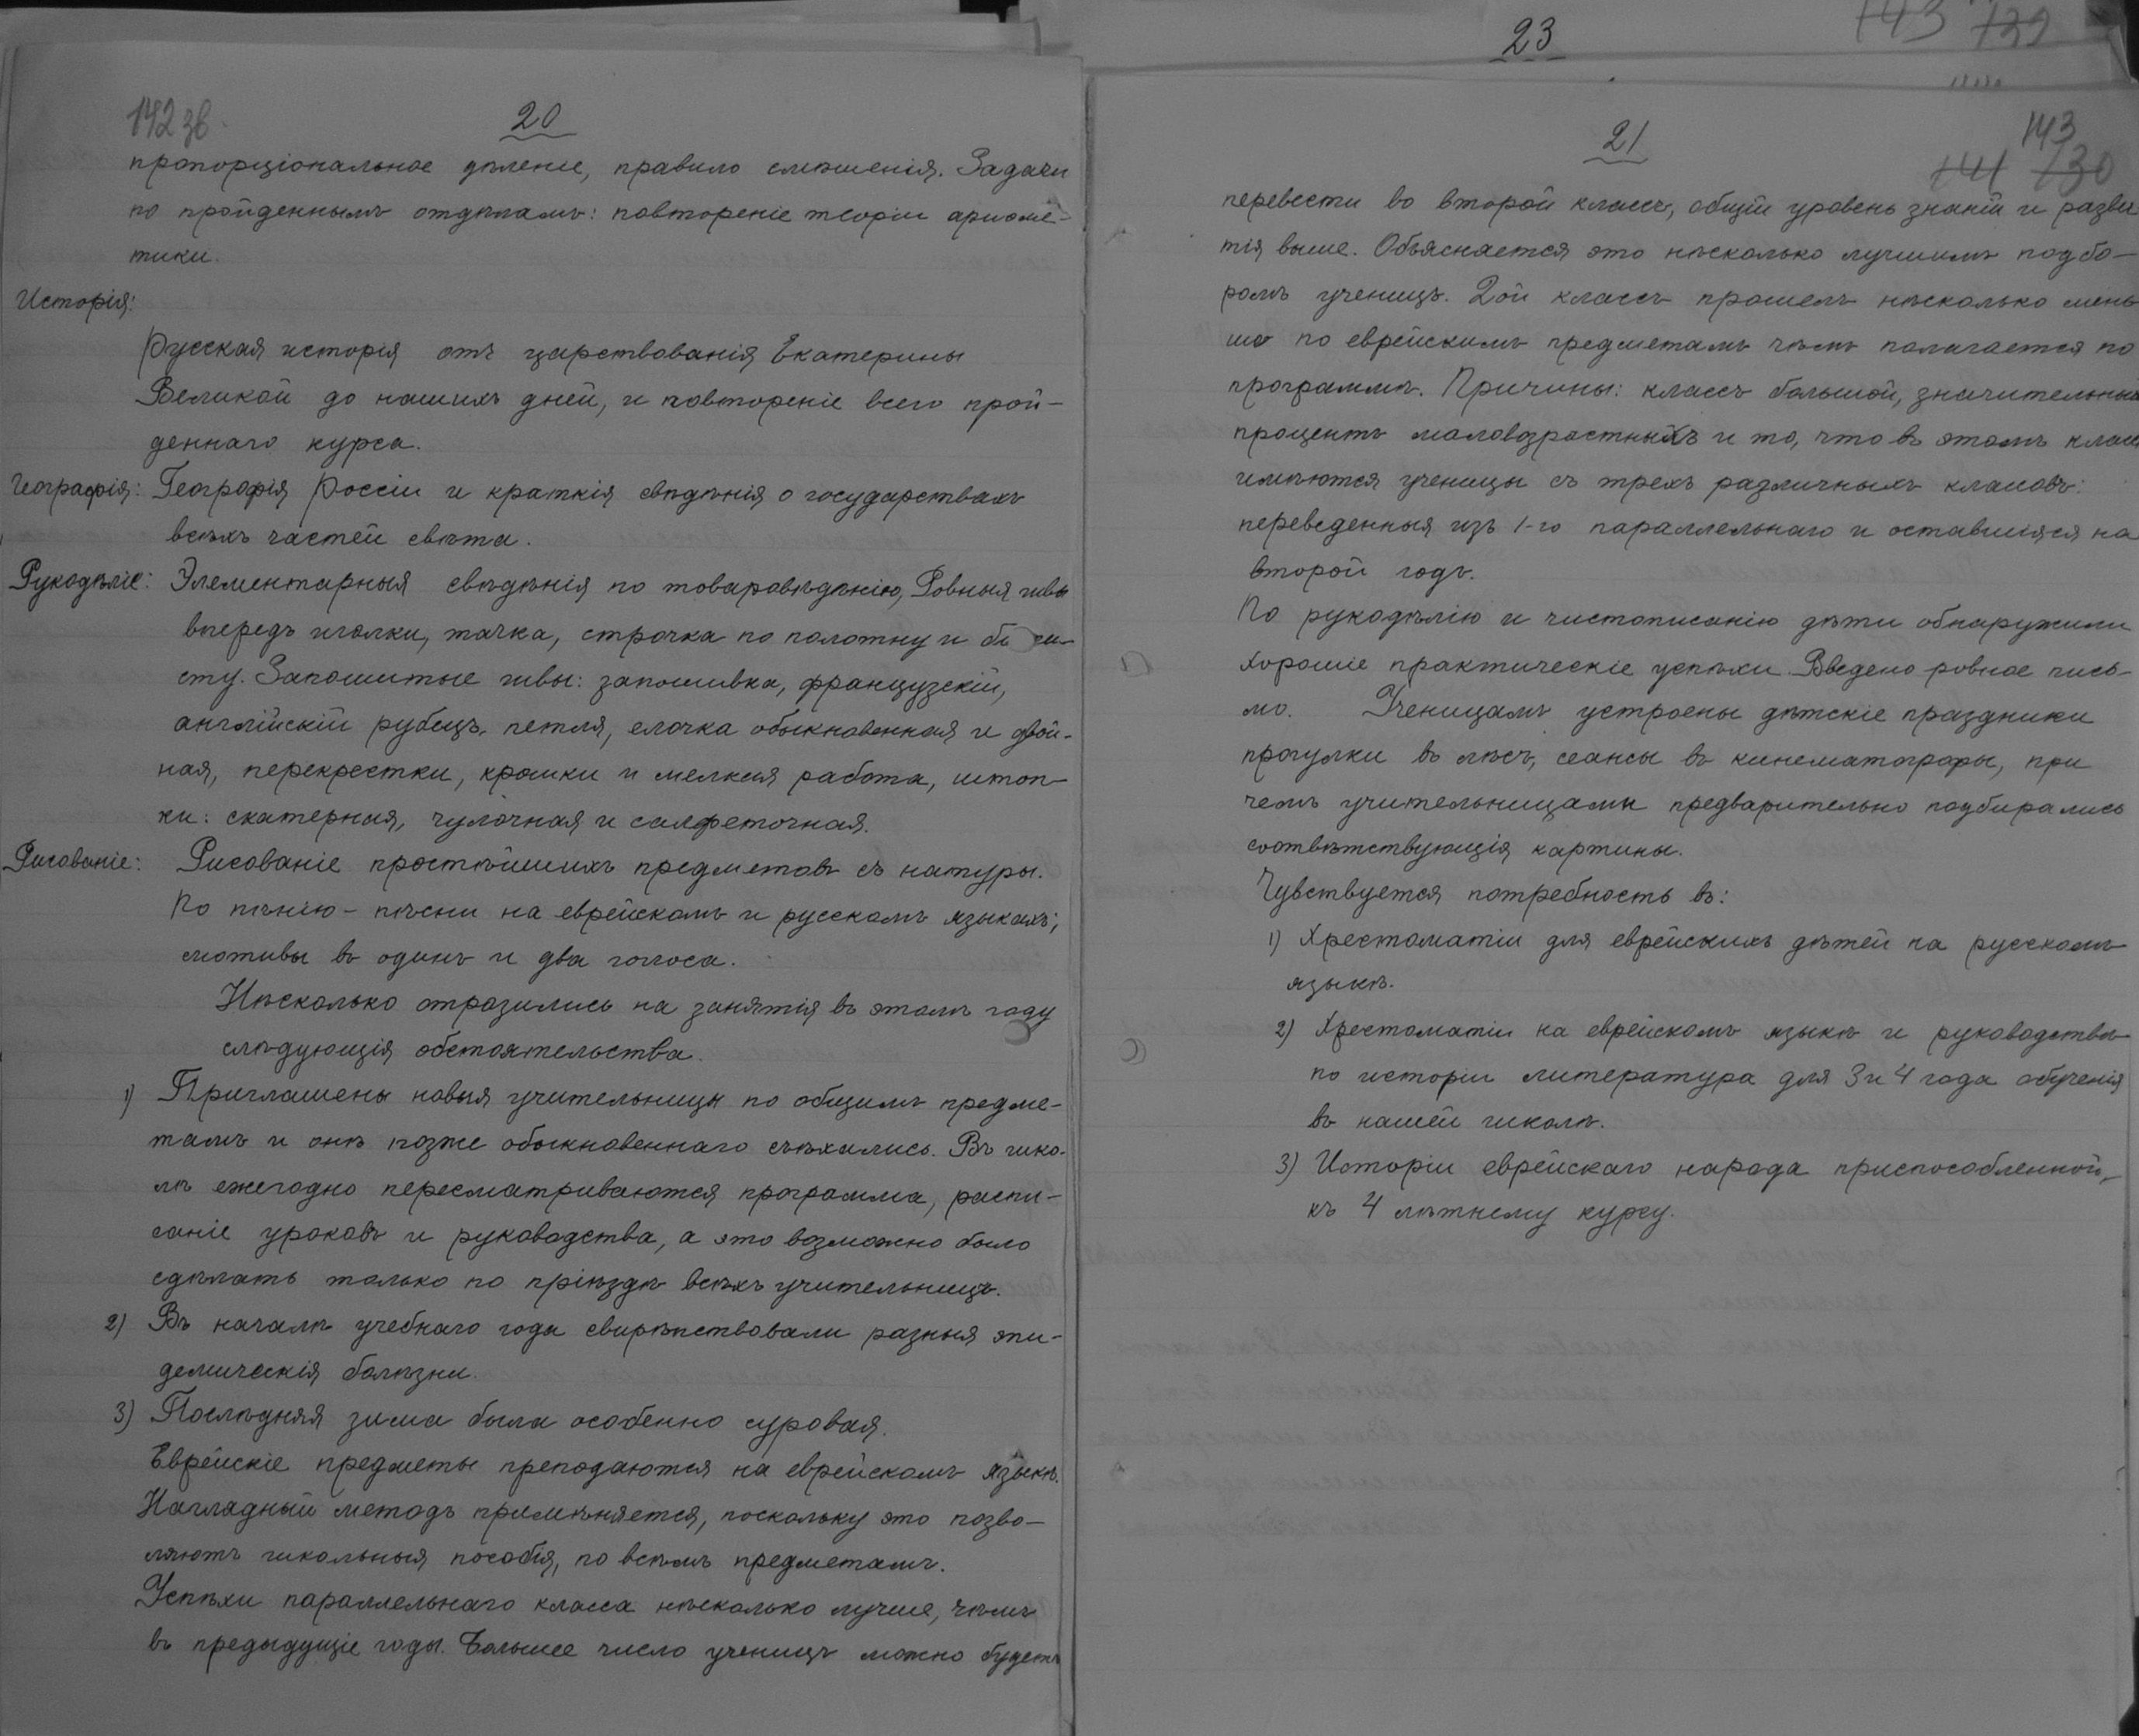 142 зв.
20
пропорціональное дѣленіе, правило смѣшенія. Задачи
по пройденнымъ отдѣламъ: повтореніе теоріи ариөме-
тики.
Исторія:
Русская исторія отъ царствованія Екатерины
Великой до нашихъ дней, и повтореніе всего прой-
деннаго курса.
Географія: Географія Россіи и краткія свѣдѣнія о государствахъ
всѣхъ частей свѣта.
Рукодѣліе: Элементарныя свѣдѣнія по товаровѣдѣнію, Ровныя швы
впередъ иголки, тачка, строчка по полотну и ба
сту. Запошитые швы: запошивка, французскій,
англійскій рубецъ, петля, елочка обыкновенная и двой-
ная, перекрестки, крошки и мелкія работа, штоп-
ки: скатерная, чулочная и салфеточная.
Рисованіе: Рисованіе простѣйшихъ предметовъ съ натуры.
По пѣнію - пѣсни на еврейскомъ и русскомъ языкахъ;
мотивы въ одинъ и два голоса.
Нѣсколько отразились на занятія въ этомъ году
слѣдующія обстоятельства.
1) Приглашены новыя учительницы по общимъ предме-
тамъ и онѣ позже обыкновеннаго съѣхались. Въ шко-
лѣ ежегодно пересматриваются программа, распи-
саніе уроковъ и руководства, а это возможно было
сдѣлать только по пріѣздѣ всѣхъ учительницъ.
2) Въ началѣ учебнаго года свирѣпствовали разныя эпи-
демическія болѣзни.
3) Послѣдняя зима была особенно суровая.
Еврейскіе предметы преподаются на еврейскомъ языкѣ.
Наглядный методъ примѣняется, поскольку это позво-
ляютъ школьныя пособія, по всѣмъ предметамъ.
Успѣхи параллельнаго класса нѣсколько лучше, чѣмъ
въ предыдущіе годы. Большее число ученицъ можно будетъ
23
143 139
21
143
141 130
перевести во второй классъ, общій уровень знаній и разви
тія выше. Объясняется это нѣсколько лучшимъ подбо-
ромъ ученицъ. 2ой классъ прошелъ нѣсколько мень
ше по еврейскимъ предметамъ чѣмъ полагается по
программѣ. Причины: классъ большой, значительный
процентъ маловозрастныхъ и то, что въ этомъ клас
имѣются ученицы съ трехъ различныхъ классовъ:
переведенныя изъ 1-го параллельнаго и оставшіяся на
второй годъ.
По рукодѣлію и чистописанію дѣти обнаружили
хорошіе практическіе успѣхи. Введено ровное пись-
мо. Ученицамъ устроены дѣтскіе праздники
прогулки въ лѣсъ, сеансы въ кинематографы, при
чемъ учительницами предварительно подбирались
соотвѣтствующія картины.
Чувствуется потребность въ:
1) Хрестоматіи для еврейскихъ дѣтей на русскомъ
языкѣ.
2) Хрестоматіи на еврейскомъ языкѣ и руководствѣ
по исторіи литература для 3 и 4 года обученія
въ нашей школѣ.
3) Исторіи еврейскаго народа приспособленной,
къ 4 лѣтнему курсу.